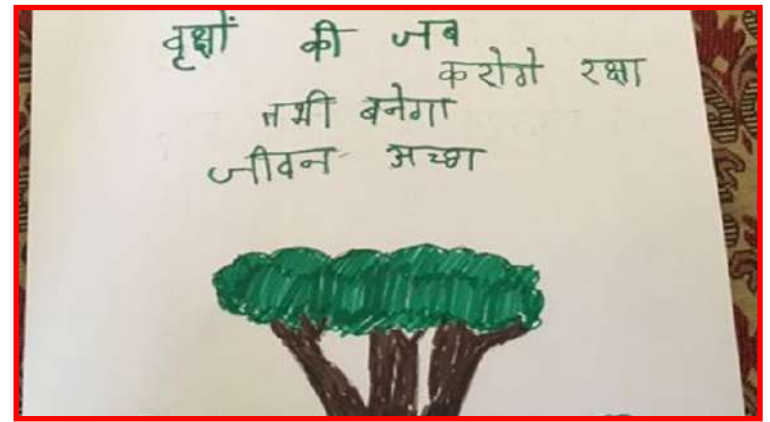 वृक्षों की जब
करोगे रक्षा
तभी बनेगा
जीवन अच्छा